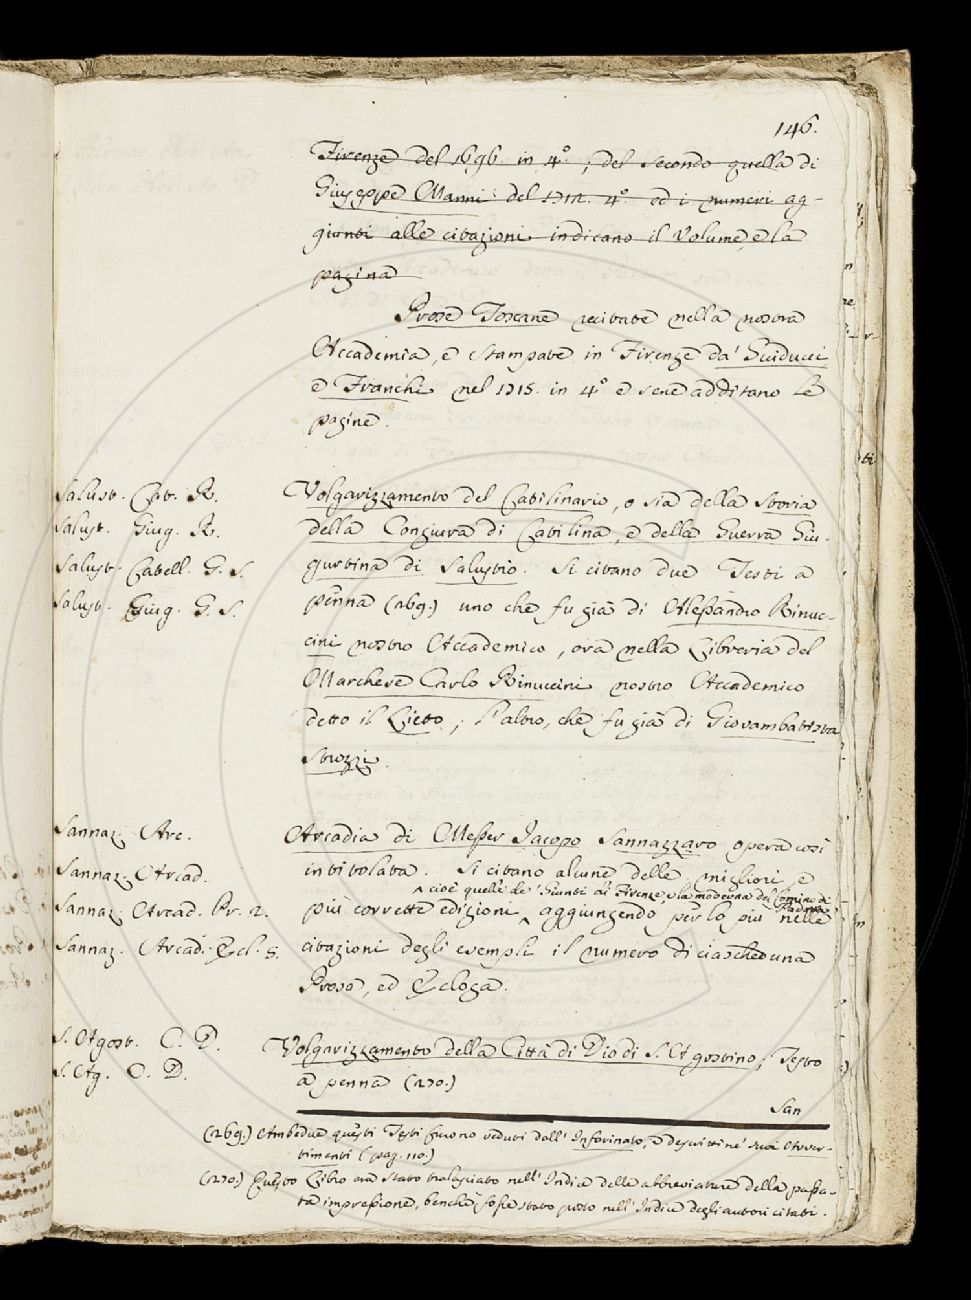 146.
Firenze del 1696. in 4°, del secondo quella di
Giuseppe Manni del 1712. 4° ed i numeri ag-
giunti alle citazioni indicano il Volume, e la
pagina
Prose Toscane recitate nella nostra
Accademia, e stampate in Firenze da' Guiducci
e Franchi nel 1715. in 4° e se ne additano le
pagine.
Salust. Cat. R.
Salust. Giug. R.
Salust. Catell. G. S.
Salust. Giug. G. S.
Volgarizzamento del Catilinario, o sia della Storia
della Congiura di Catilina, e della Guerra Giu-
gurtina di Salustio. Si citano due Testi a
penna (269.) uno che fu già di Alessandro Rinuc-
cini nostro Accademico, ora nella Libreria del
Marchese Carlo Rinuccini nostro Accademico
detto il Lieto; l'altro, che fu già di Giovambattista
Strozzi.
Sannaz. Arc.
Sannaz. Arcad.
Sannaz. Arcad. Pr. 2.
Sannaz. Arcad. Ecl. 5.
Arcadia di Messer Jacopo Sannazzaro opera così
intitolata. Si citano alcune delle migliori, e
cioè quelle de' Giunti di Firenze, e la moderna del Comino di Padova
più corrette edizioni aggiungendo per lo più nelle
citazioni degli esempli il numero di ciascheduna
Prosa, ed Ecloga.
S. Agost. C. D.
S. Ag. C. D.
Volgarizzamento della Città di Dio di S. Agostino; Testo
a penna (270.)
San
(269.) Ambedue questi Testi furono veduti dall' Infarinato, e descritti ne' suoi Avver-
timenti (pag. 110.)
(270.) Questo Libro era stato tralasciato nell' Indice delle abbreviature della passa-
ta impressione, benchè fosse stato posto nell' Indice degli autori citati.